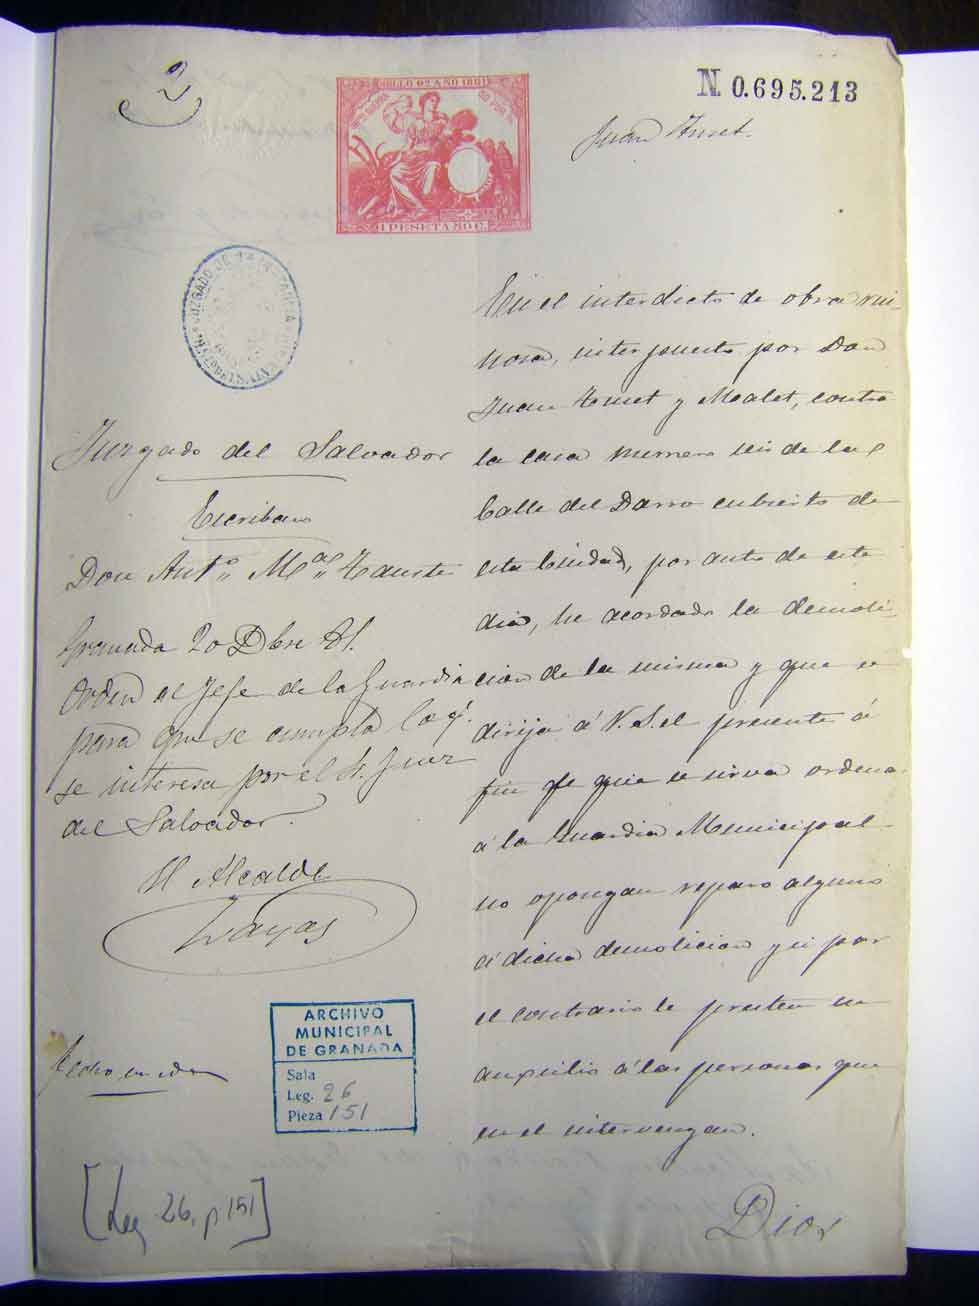 2
SELLO 6º AÑO 1881
1 PESETA 50 C.
N. 0.695.213
Juan
JUZGADO DE 1ª INSTANCIA
Juzgado del Salvador
Escribano
Don Antº Mª Tauste
Granada 20 Dbre 81.
Orden al Jefe de la Guardia
para que se cumpla lo q.
se interesa por el Sr. Juez
del Salvador.
El Alcalde
Zayas
En el interdicto de obra rui-
nosa, interpuesto por Don
Juan y Mealet, contra
la casa numero seis de la
Calle del Darro cubierto de
esta Ciudad, por auto de este
dia, he acordado la demoli-
cion de la misma y que se
dirija á V. S. el presente á
fin de que se sirva ordenar
á la Guardia Municipal
no opongan reparo alguno
á dicha demolicion y si por
el contrario le presten su
ausilio á las personas que
en el intervengan.
Dios
ARCHIVO
MUNICIPAL
DE GRANADA
Sala
Leg. 26
Pieza 151
[Leg 26, p 151]